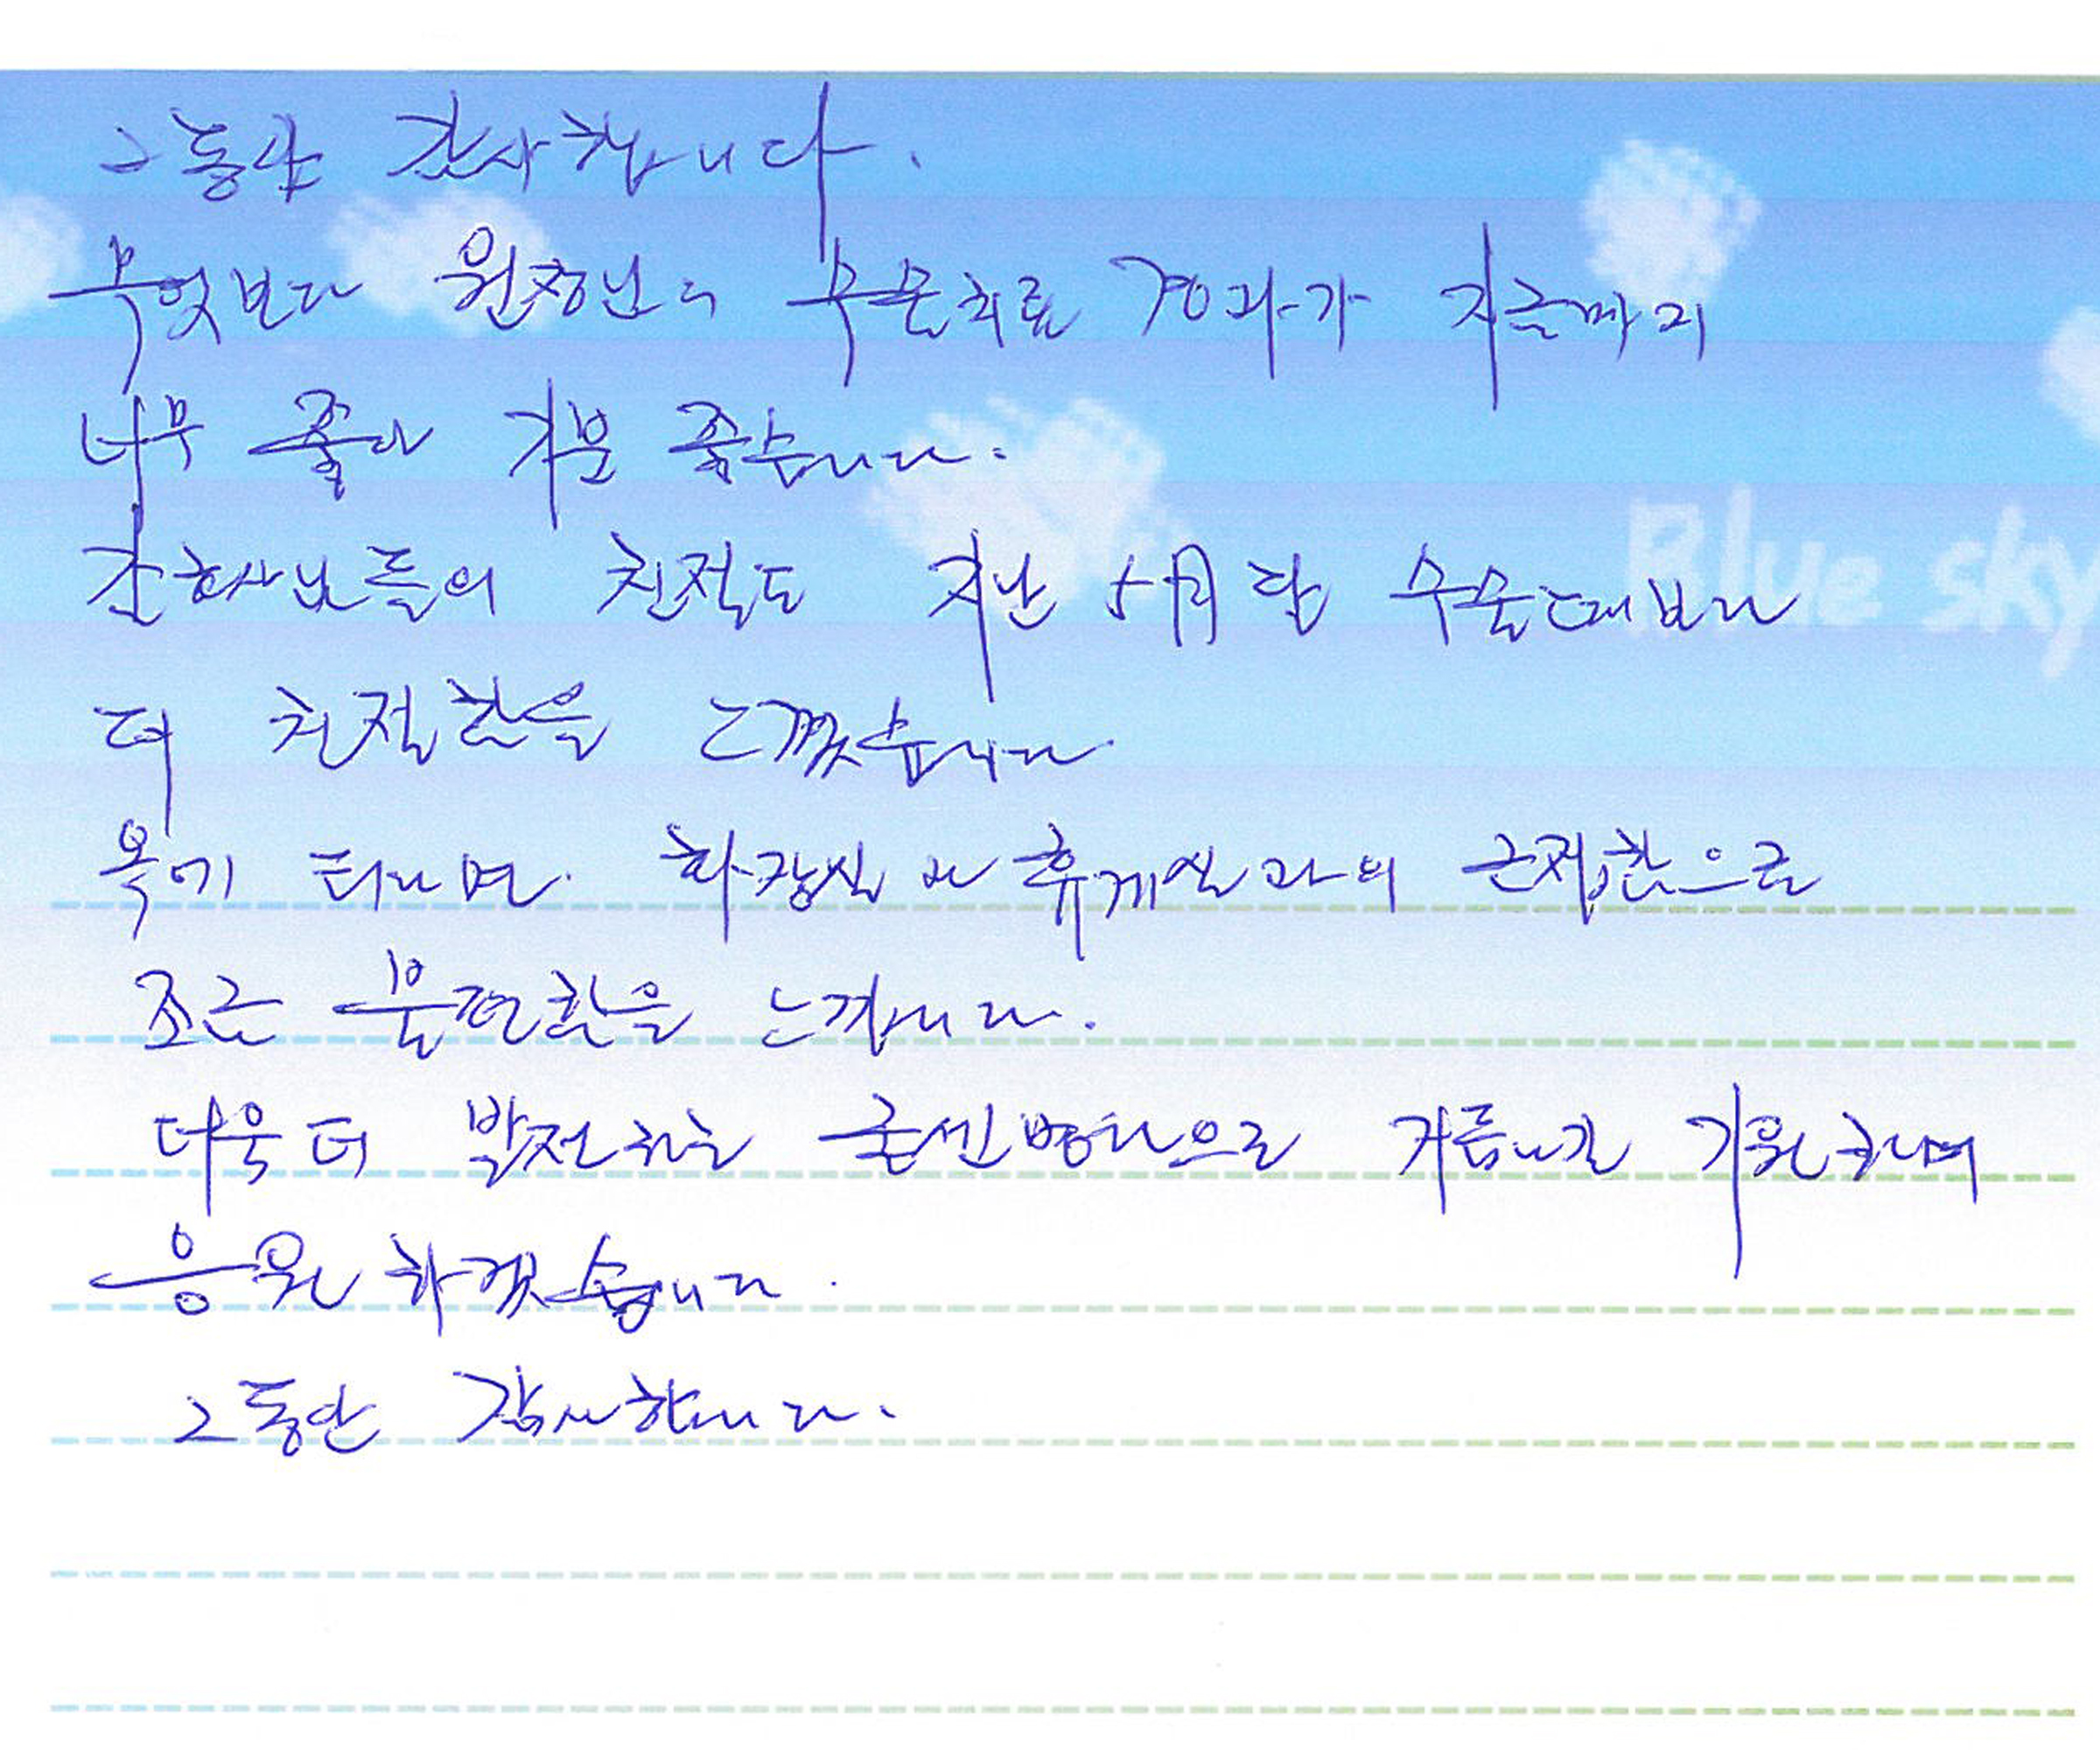 그동안 감사합니다.
무엇보다 원장님의 수술치료 경과가 지금까지
너무 좋아 기분 좋습니다.
간호사님들의 친절도 지난 5月달 수술때보다
Blue sky
더 친절함을 느꼈습니다
옥에 티라면. 화장실 및 휴게실과의 근접함으로
조금 불편함을 느낍니다.
더욱 더 발전하는 굿센병원으로 거듭나길 기원하며
응원 하겠습니다.
그동안 감사합니다.